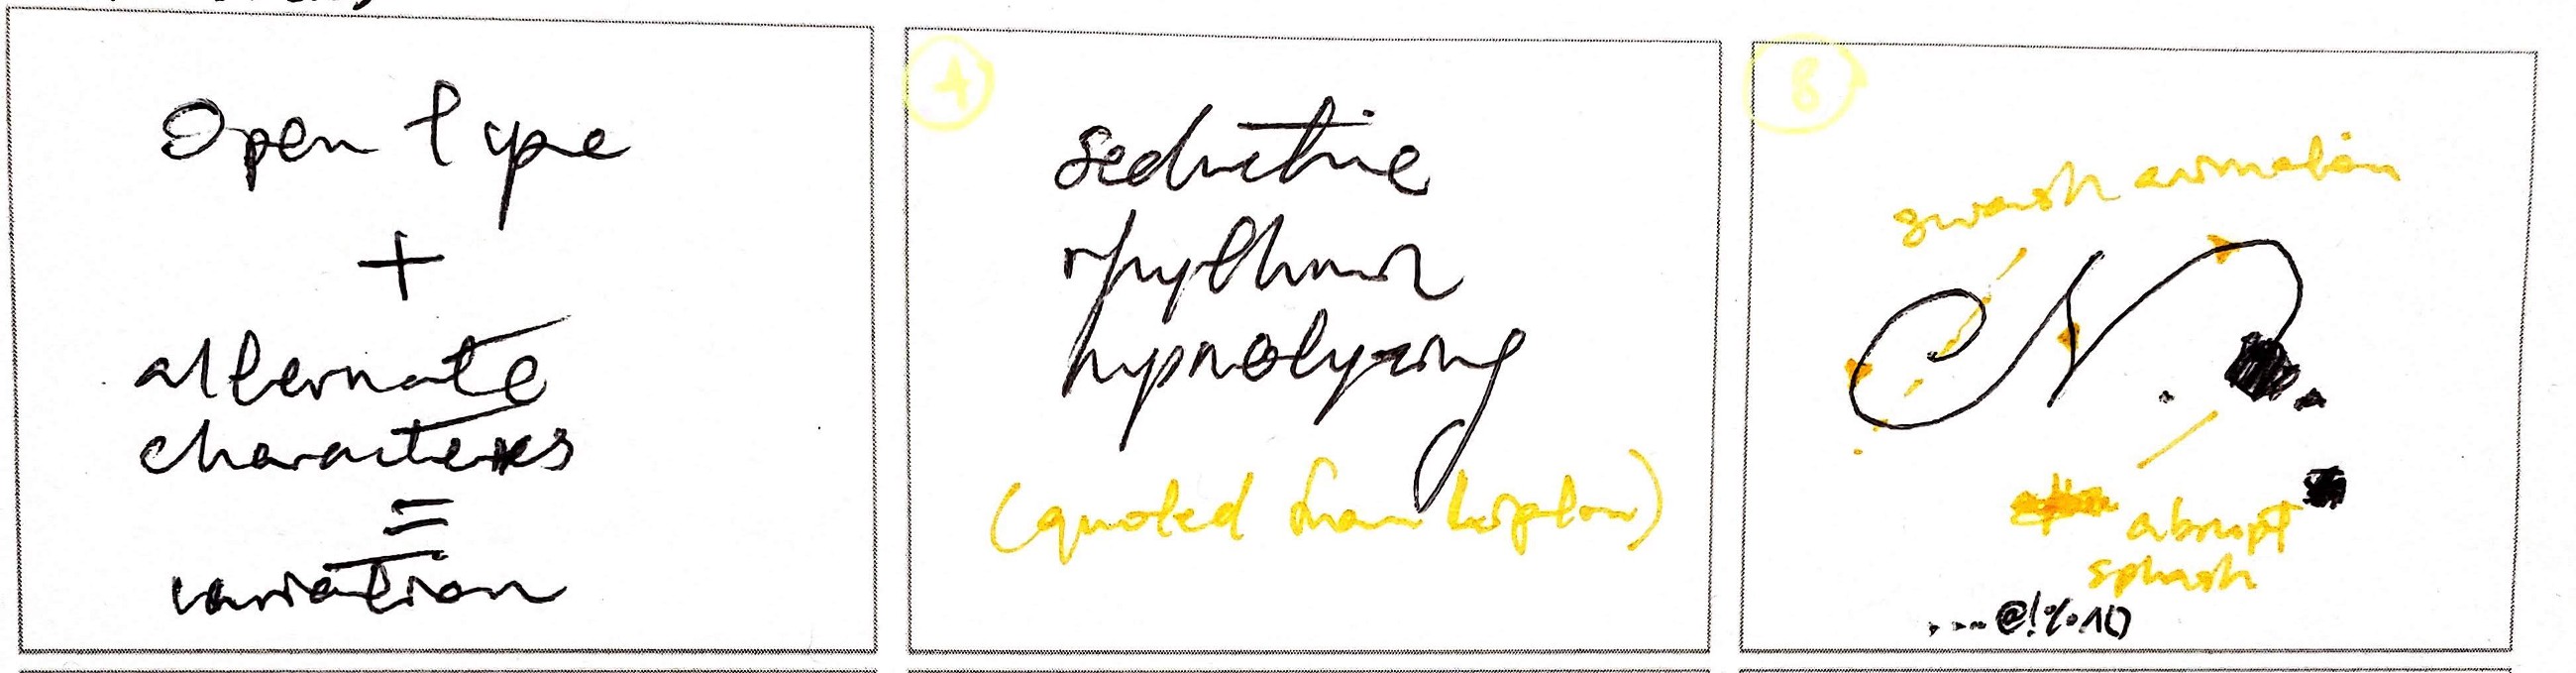 Open type
+
alternate
characters
=
variation
4
seductive
hypnotyzing
(quoted from
8
swash animation
N
abrupt
splash
...@!%